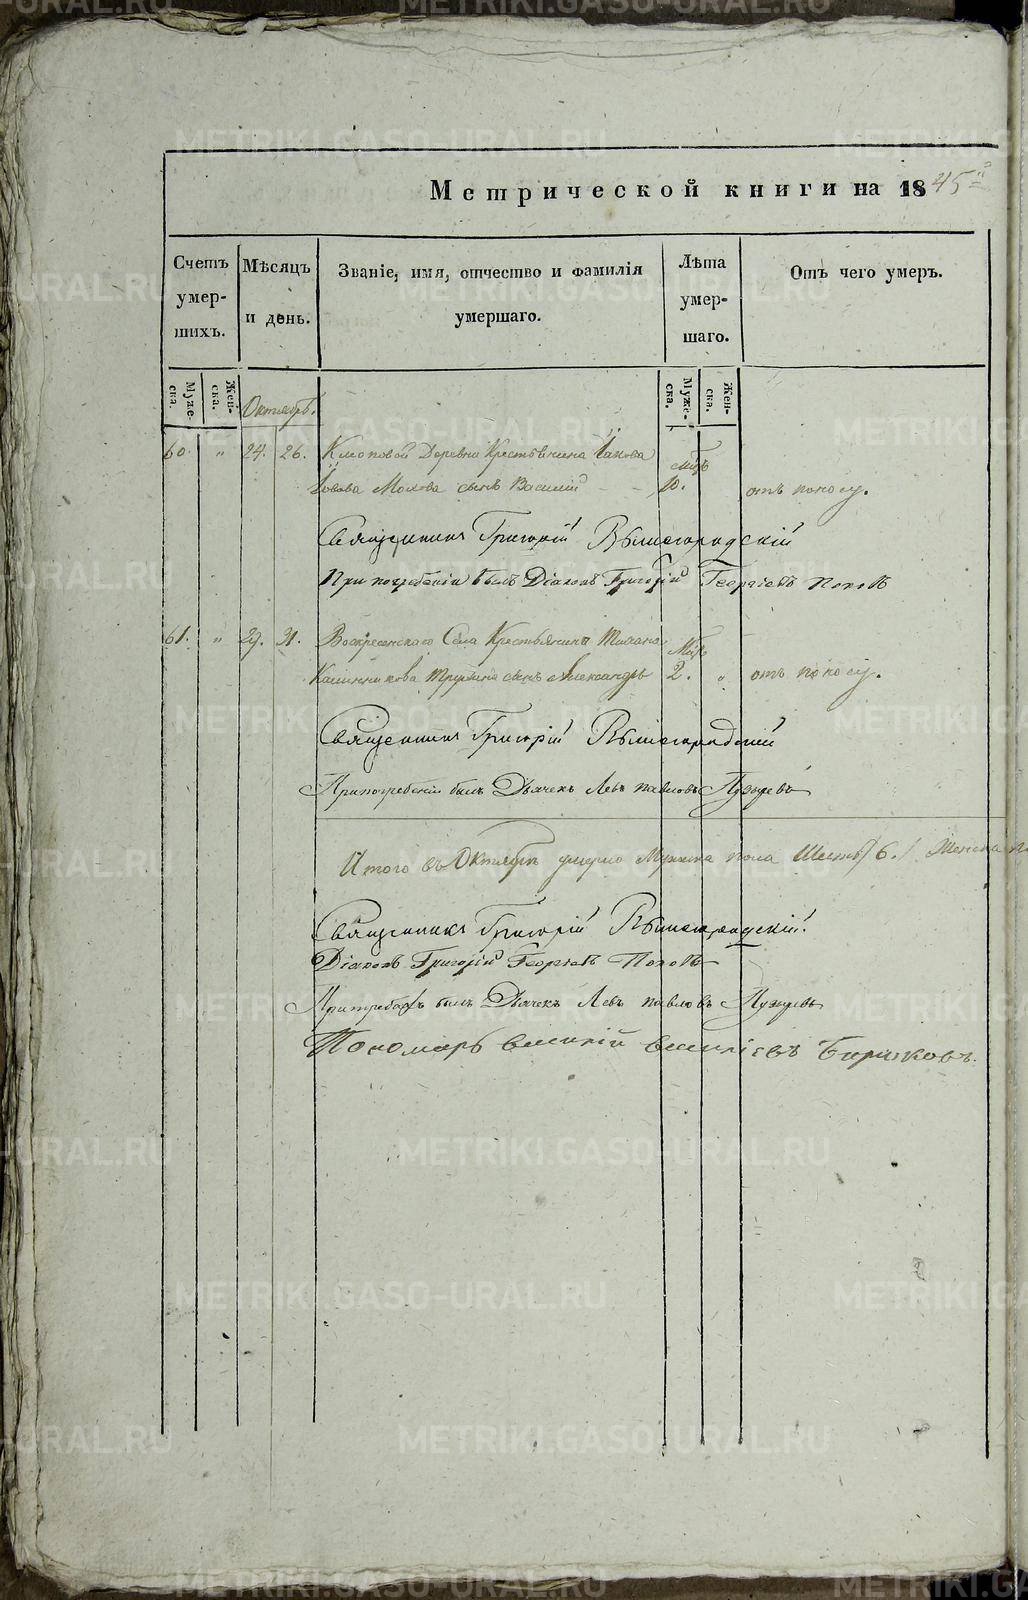 Метрической книги на 1845й
Счетъ умер-шихъ.
Мѣсяцъ и день.
Званіе, имя, отчество и фамилія умершаго.
Лѣта умер-шаго.
Отъ чего умеръ.
Муже-ска.
Жен-ска.
Октябрь.
Муже-ска.
Жен-ска.
60. " 24. 26. Клюповой Деревни Крестьянина Іакова
Іовова сынъ Василій 10. отъ поносу.
Священникъ Григорій Вышегородскій
При погребеніи былъ Діаконъ Григорій Георгіевъ Поповъ
61. " 29. 31. Воскресенскаго Села Крестьянина
сынъ Александръ 2. " отъ поносу.
Священникъ Григорій Вышегородскій
При погребеніи былъ Дьячекъ Левъ Павловъ Пузыревъ
Итого въ Октябрѣ умерло Мужеска пола Шесть /6./ Женска
Священникъ Григорій Вышегородскій.
Діаконъ Григорій Георгіевъ Поповъ
былъ Дьячекъ Левъ Павловъ Пузыревъ
Пономарь Василій Василіевъ Бирюковъ.
METRIKI.GASO-URAL.RU